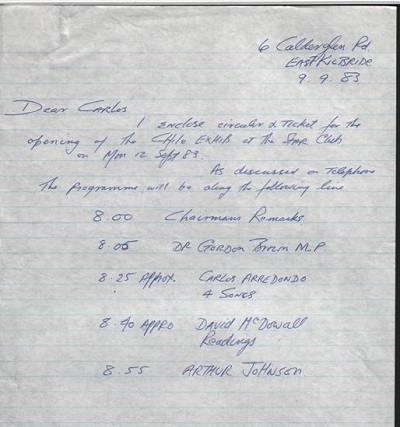 6 Calderglen Rd.
EAST KILBRIDE
9.9.83
Dear CARLOS
I ENCLOSE circular & Ticket for the
opening of the CHILE EXHIB at the STAR Club
on Mon 12 Sept 83.
As discussed on Telephone
The programme will be along the following line
8.00 Chairmans Remarks
8.05 DR GORDON Brown M.P
8.25 Approx. CARLOS ARREDONDO
4 SONGS
8.40 APPRO DAVID McDowall
Readings
8.55 ARTHUR JOHNSON